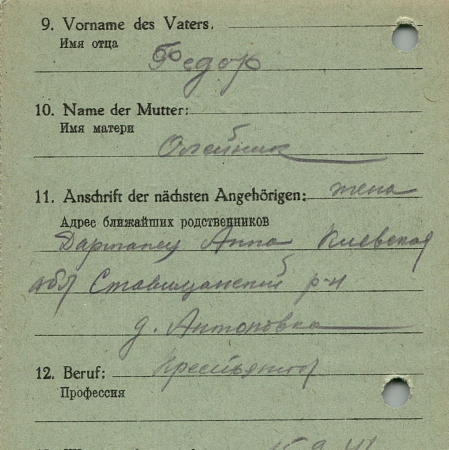 9. Vorname des Vaters.
Имя отца
Федор
10. Name der Mutter:
Имя матери
Олейник
11. Anschrift der nächsten Angehörigen: жена
Адрес ближайших родственников
Анна Киевская
обл Ставищанский р-н
д. Антоновка
12. Beruf: крестьянин
Профессия